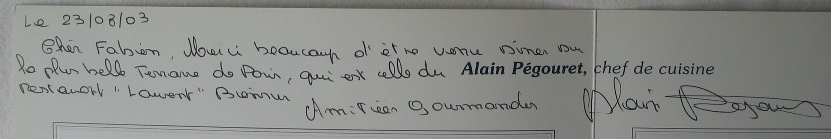 Le 23/08/03
Cher Fabien, Merci beaucoup d'être venu diner sur
la plus belle Terrasse de Paris, qui est celle du Alain Pégouret, chef de cuisine
restaurant "Laurent"
Amitiés Gourmandes Alain Pégouret